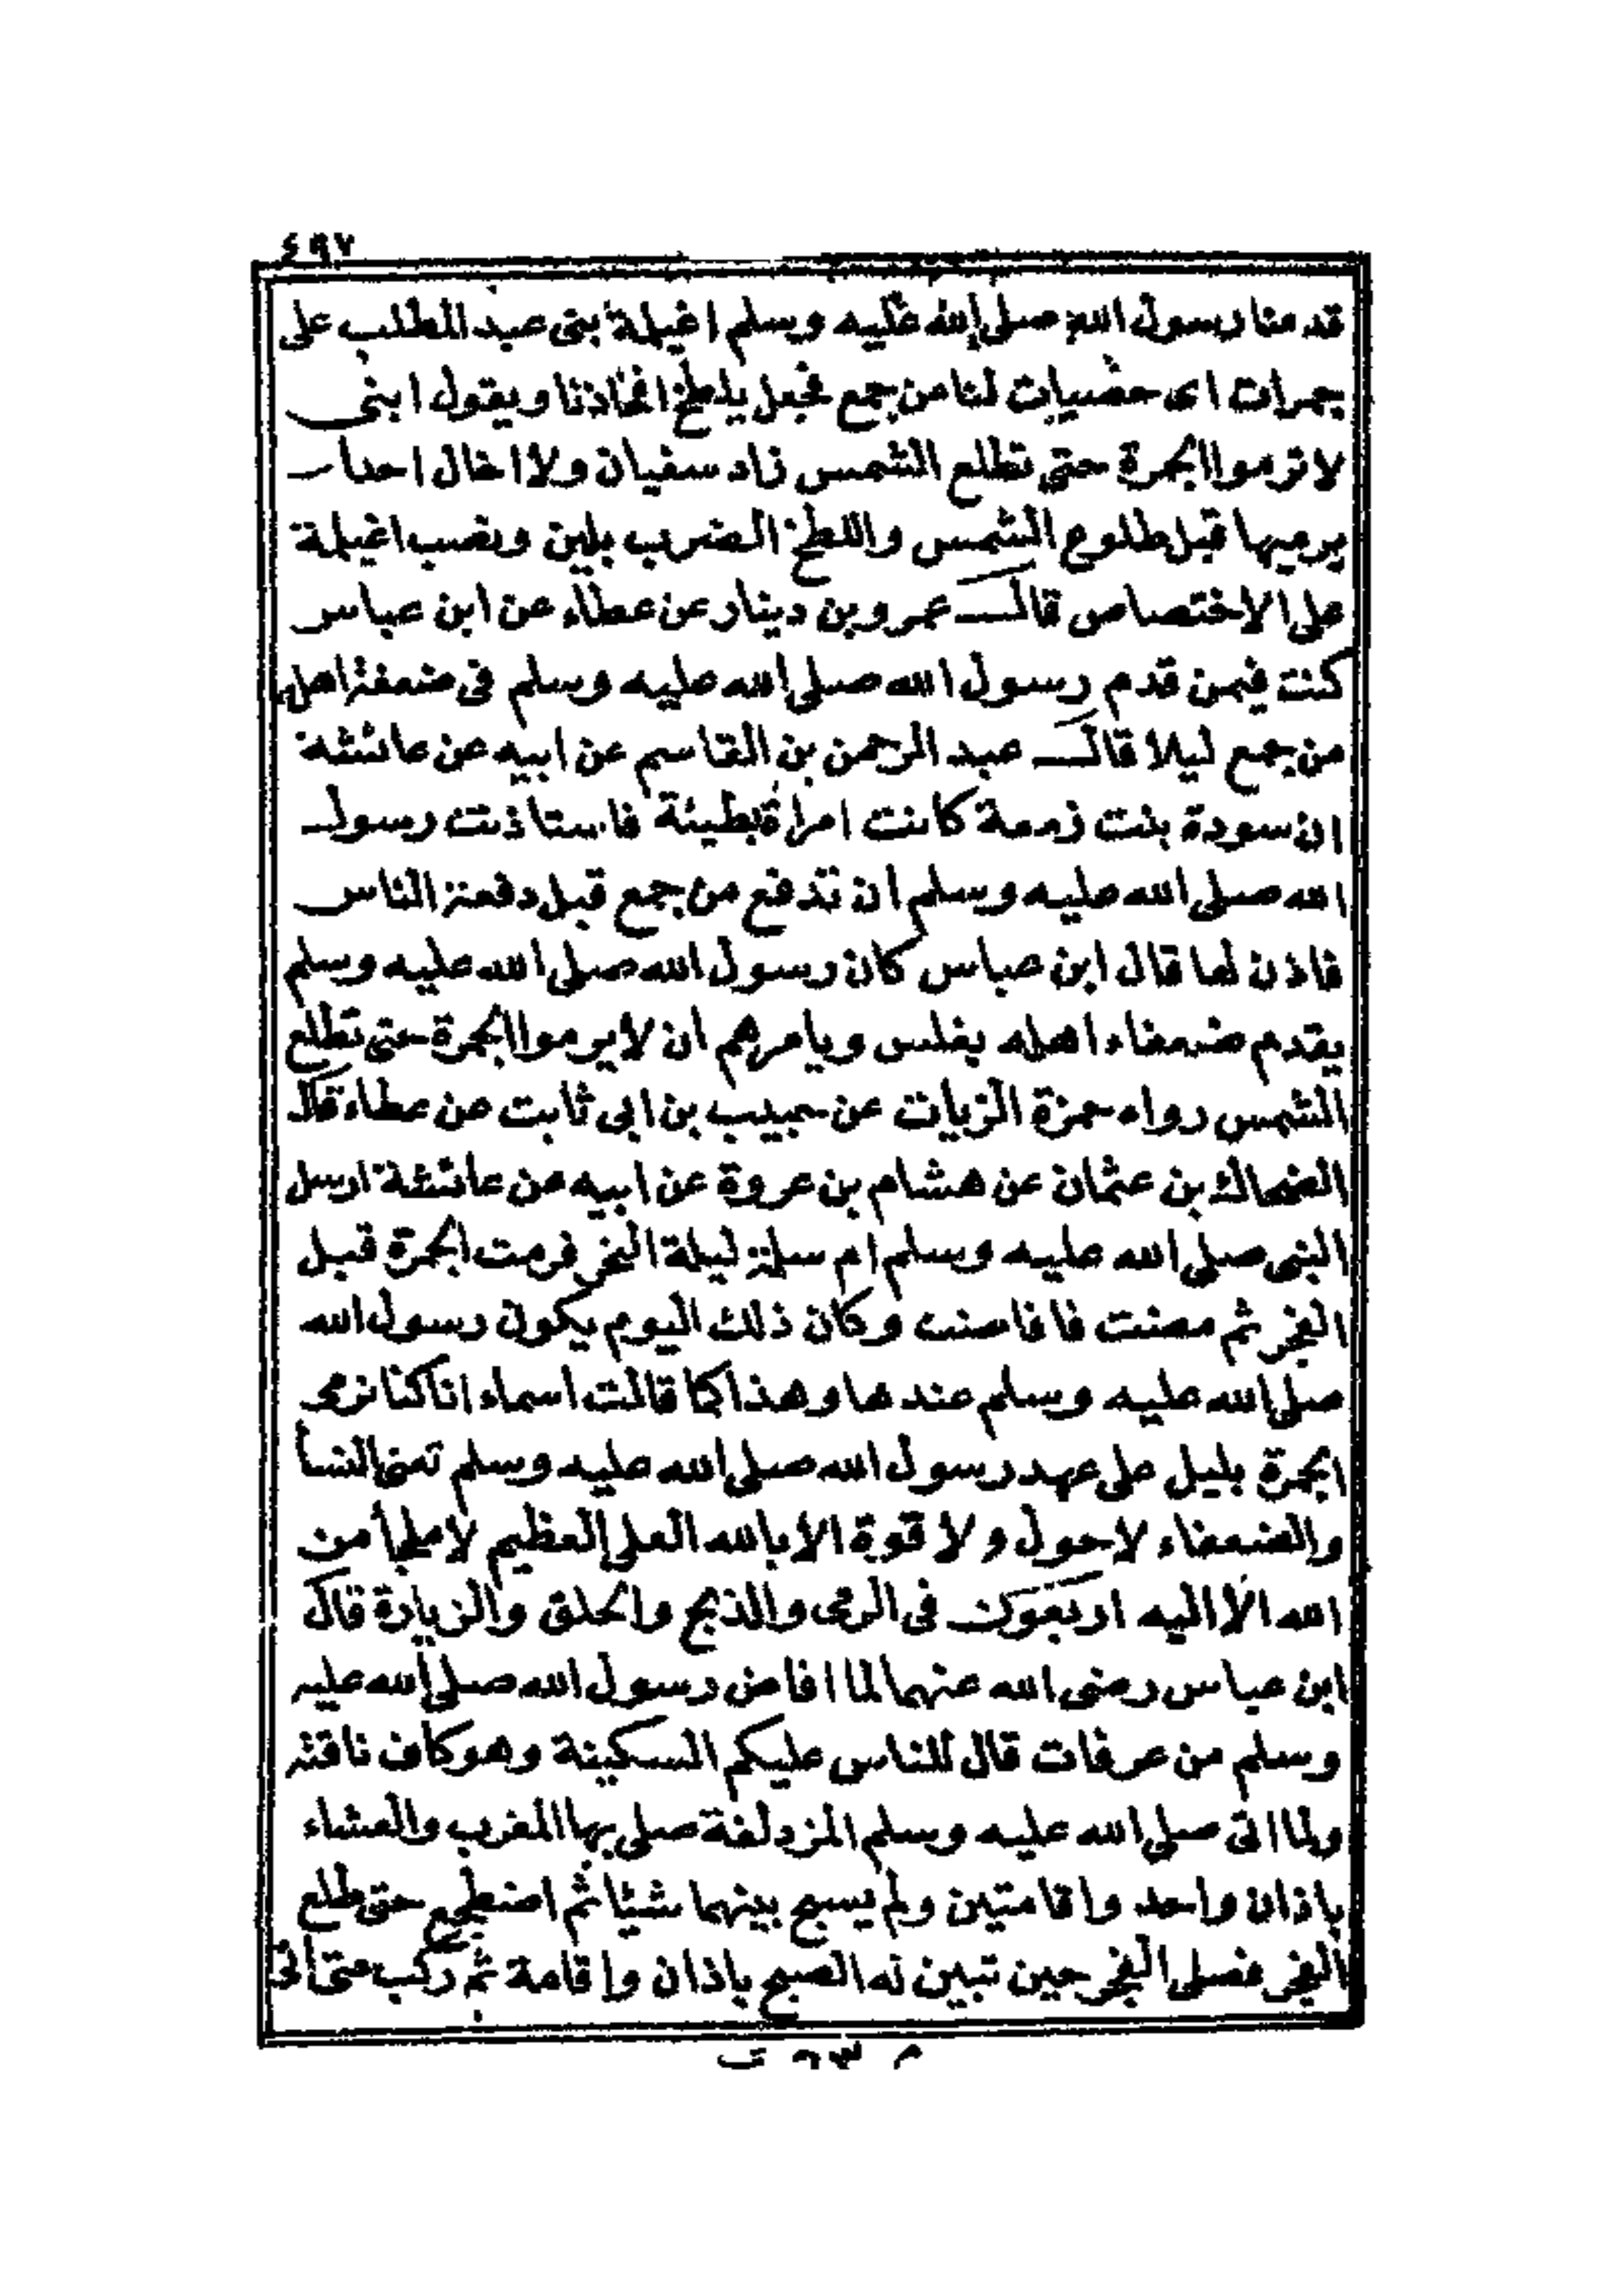 ٤٩٧
قد منا رسول الله صلى الله عليه وسلم اغيلمة بنى عبد المطلب على
جمرات اى حصيات لنا من جمع فجعل يلطخ افخاذنا ويقول ابنى
لا ترموا الجمرة حتى تطلع الشمس زاد سفيان ولا اخال احدا
يرميها قبل طلوع الشمس واللطخ الضرب بلين ونصب اغيلمة
على الاختصاص قال عمرو بن دينار عن عطاء عن ابن عباس
كنت فيمن قدم رسول الله صلى الله عليه وسلم فى ضعفة اهله
من جمع ليلا قال عبد الرحمن بن القاسم عن ابيه عن عائشة
ان سودة بنت زمعة كانت امراة بطيئة فاستاذنت رسول
الله صلى الله عليه وسلم ان تدفع من جمع قبل دفعة الناس
فاذن لها قال ابن عباس كان رسول الله صلى الله عليه وسلم
يقدم ضعفاء اهله بغلس ويامرهم ان لا يرموا الجمرة حتى تطلع
الشمس رواه حمزة الزيات عن حبيب بن ابى ثابت عن عطاء قال
الضحاك بن عثمان عن هشام بن عروة عن ابيه عن عائشة ارسل
النبى صلى الله عليه وسلم ام سلمة ليلة النحر فرمت الجمرة قبل
الفجر ثم مضت فافاضت وكان ذلك اليوم يكون رسول الله
صلى الله عليه وسلم عندها وهذا كما قالت اسماء انا كنا نرمى
الجمرة بليل على عهد رسول الله صلى الله عليه وسلم تعنى النسأ
والضعفاء لا حول ولا قوة الا بالله العلى العظيم لا ملجأ من
الله الا اليه اربعون فى الرمى والذبح والحلق والزيارة قال
ابن عباس رضى الله عنهما لما افاض رسول الله صلى الله عليه
وسلم من عرفات قال للناس عليكم السكينة وهو كاف ناقته
ولما اتى صلى الله عليه وسلم المزدلفة صلى بها المغرب والعشاء
باذان واحد واقامتين ولم يسبح بينهما شيئا ثم اضطجع حتى طلع
الفجر فصلى الفجر حين تبين له الصبح باذان وإقامة ثم ركب حتى اتى